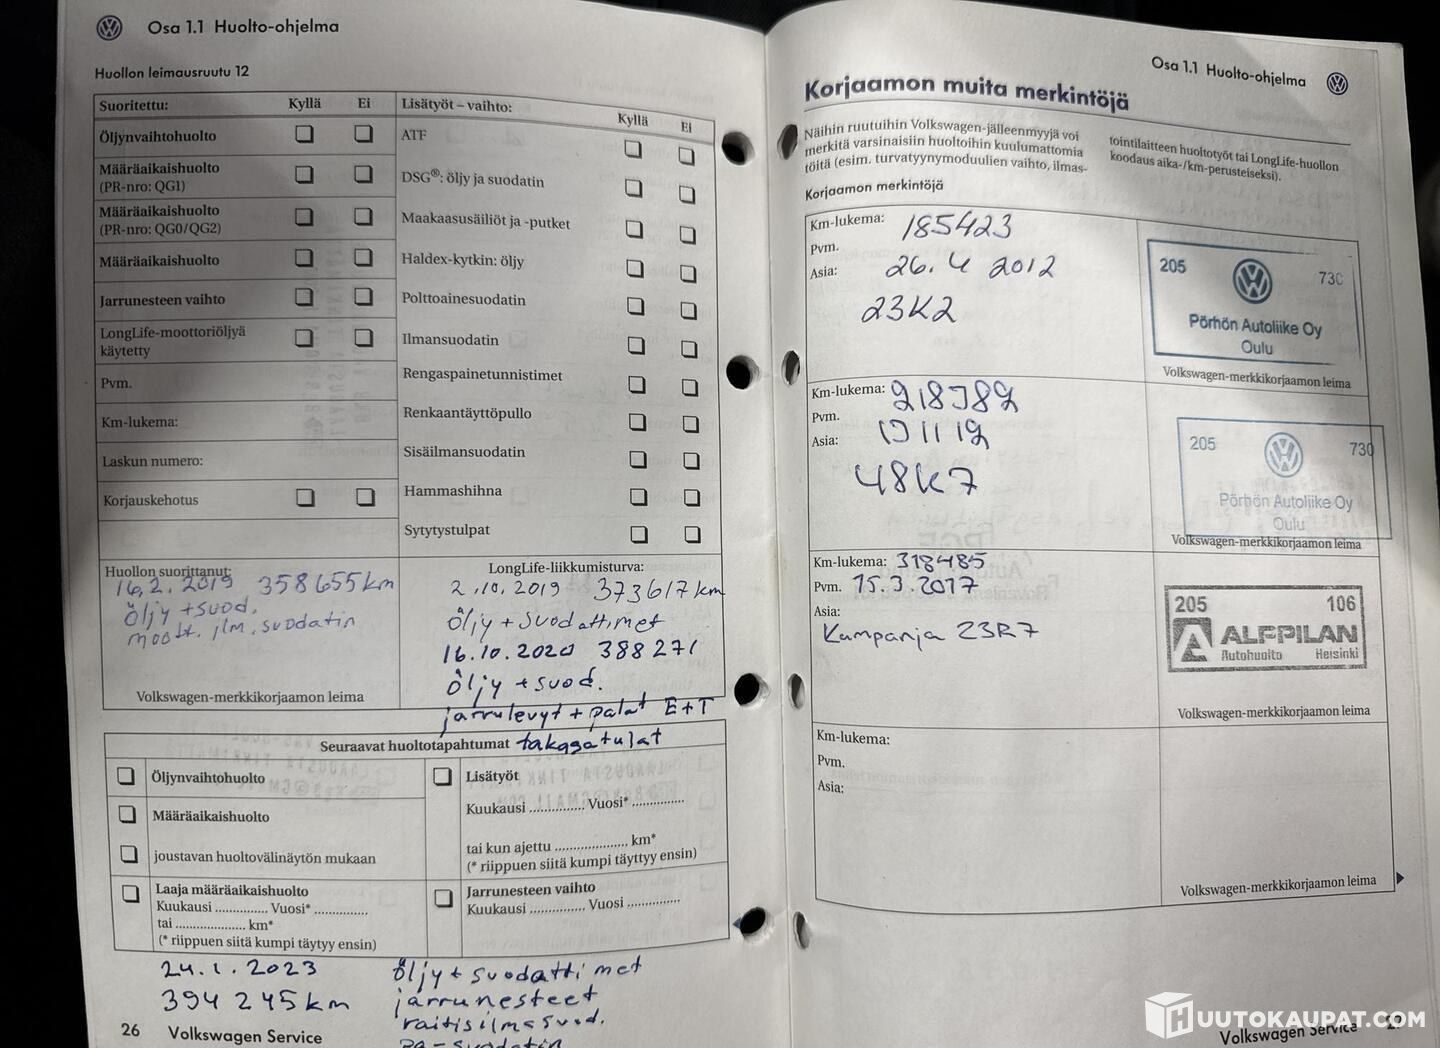 Osa 1.1 Huolto-ohjelma
Huollon leimausruutu 12
Suoritettu: Kyllä Ei
Öljynvaihtohuolto
Määräaikaishuolto
(PR-nro: QG1)
Määräaikaishuolto
(PR-nro: QG0/QG2)
Määräaikaishuolto
Jarrunesteen vaihto
LongLife-moottoriöljyä
käytetty
Pvm.
Km-lukema:
Laskun numero:
Korjauskehotus
Lisätyöt – vaihto: Kyllä Ei
ATF
DSG®: öljy ja suodatin
Maakaasusäiliöt ja -putket
Haldex-kytkin: öljy
Polttoainesuodatin
Ilmansuodatin
Rengaspainetunnistimet
Renkaantäyttöpullo
Sisäilmansuodatin
Hammashihna
Sytytystulpat
Huollon suorittanut:
16.2.2019 358655km
öljy + suod.
moott. ilm. suodatin
Volkswagen-merkkikorjaamon leima
LongLife-liikkumisturva:
2.10.2019 373617km
öljy + suodattimet
16.10.2020 388271
öljy + suod.
jarrulevyt + palat E+T
Seuraavat huoltotapahtumat takasatulat
Öljynvaihtohuolto
Määräaikaishuolto
joustavan huoltovälinäytön mukaan
Laaja määräaikaishuolto
Kuukausi ............... Vuosi* ...............
tai .................... km*
(* riippuen siitä kumpi täytyy ensin)
Lisätyöt
Kuukausi ............... Vuosi* ...............
tai kun ajettu .................... km*
(* riippuen siitä kumpi täyttyy ensin)
Jarrunesteen vaihto
Kuukausi ............... Vuosi ...............
24.1.2023
394 245km
öljy + suodattimet
jarrunesteet
raitisilmasuod.
pa-suodatin
26 Volkswagen Service
Osa 1.1 Huolto-ohjelma
Korjaamon muita merkintöjä
Näihin ruutuihin Volkswagen-jälleenmyyjä voi
merkitä varsinaisiin huoltoihin kuulumattomia
töitä (esim. turvatyynymoduulien vaihto, ilmas-
tointilaitteen huoltotyöt tai LongLife-huollon
koodaus aika-/km-perusteiseksi).
Korjaamon merkintöjä
Km-lukema: 185423
Pvm.
Asia: 26.4 2012
23K2
205 730
Pörhön Autoliike Oy
Oulu
Volkswagen-merkkikorjaamon leima
Km-lukema: 218982
Pvm.
Asia: 19 11 12
48K7
205 730
Pörhön Autoliike Oy
Oulu
Volkswagen-merkkikorjaamon leima
Km-lukema: 318485
Pvm. 15.3.2017
Asia:
Kampanja 23R7
205 106
A ALPPILAN
Autohuolto Helsinki
Volkswagen-merkkikorjaamon leima
Km-lukema:
Pvm.
Asia:
Volkswagen-merkkikorjaamon leima
Volkswagen Service 27
HUUTOKAUPAT.COM